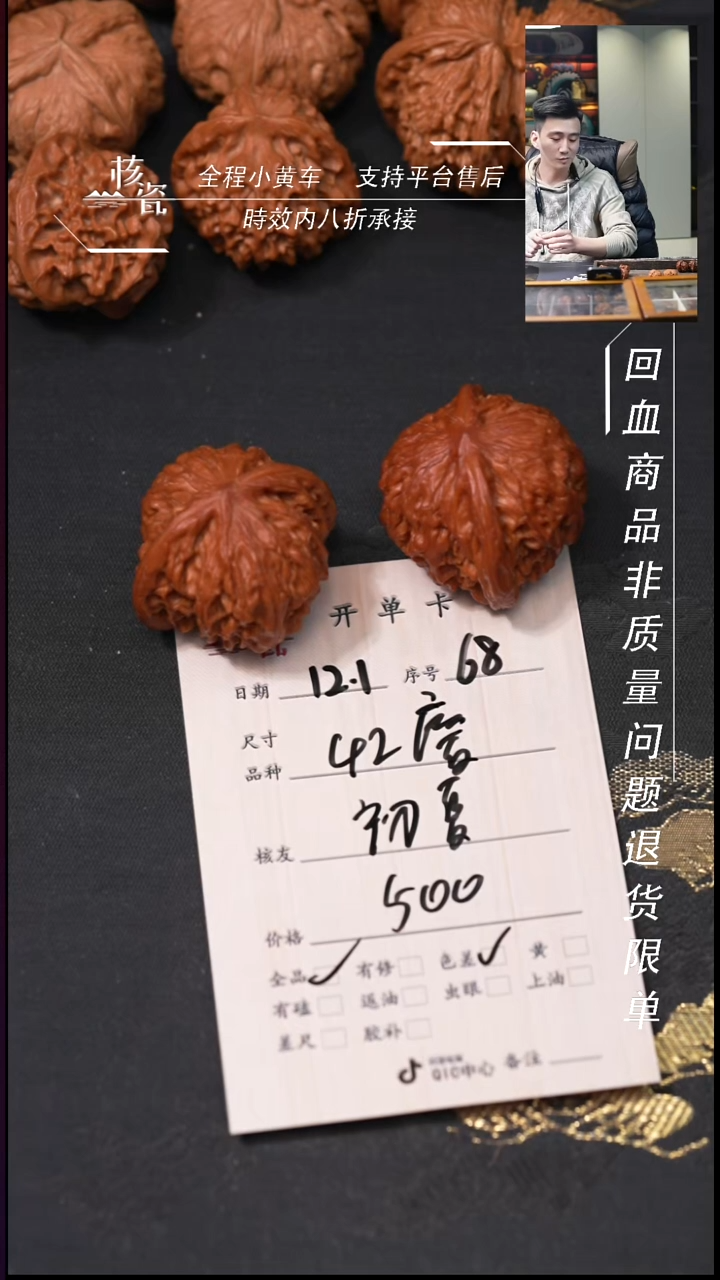 核瓷
全程小黄车 支持平台售后
時效内八折承接
回血商品非质量问题退货限单
开单卡
日期 12.1 序号 68
尺寸
品种 42磨
核友 初夏
价格 500
全品 ✓ 有修 色差 ✓ 黄
有磕 返油 虫眼 上油
差尺 胶补
QIC中心 备注